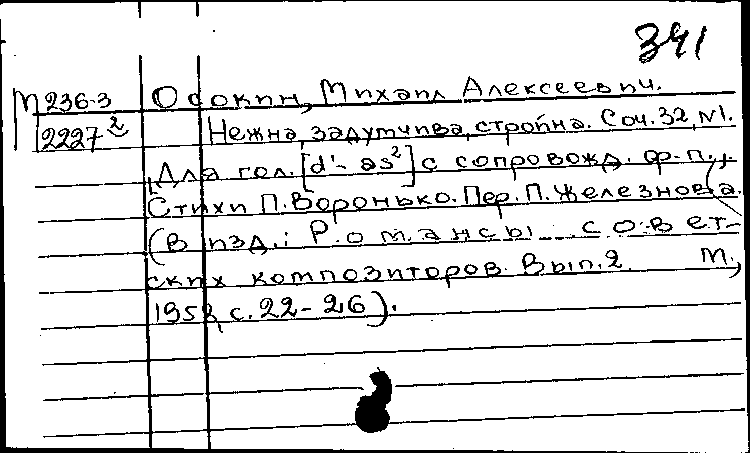 341
М 236-3 Осокин, Михаил Алексеевич.
2227² Нежна, задумчива, стройна. Соч. 32, №1.
Для гол. [d'- as²] с сопровожд. ф-п.,
Стихи П. Воронько. Пер. П. Железнова.
(В изд.: Романсы совет-
ских композиторов. Вып. 2 М.,
1958, с. 22-26).